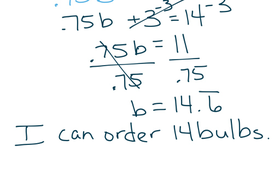 .75b + 3 -3 = 14 -3
.75b = 11
.75 .75
b = 14.6̅
I can order 14 bulbs.